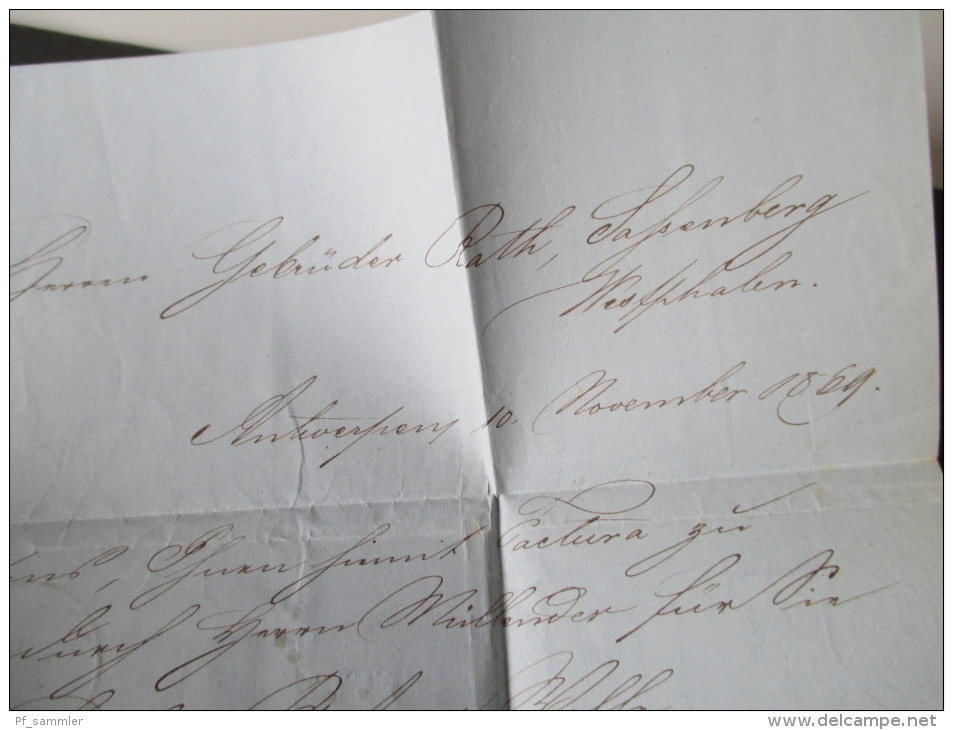 Herren Gebrüder Rath, Sassenberg
Westphalen.
Antwerpen, 10. November 1869.
uns, Ihnen hiermit Factura zu
durch Herrn Müllender für Sie
Pf_sammler
www.delcampe.net